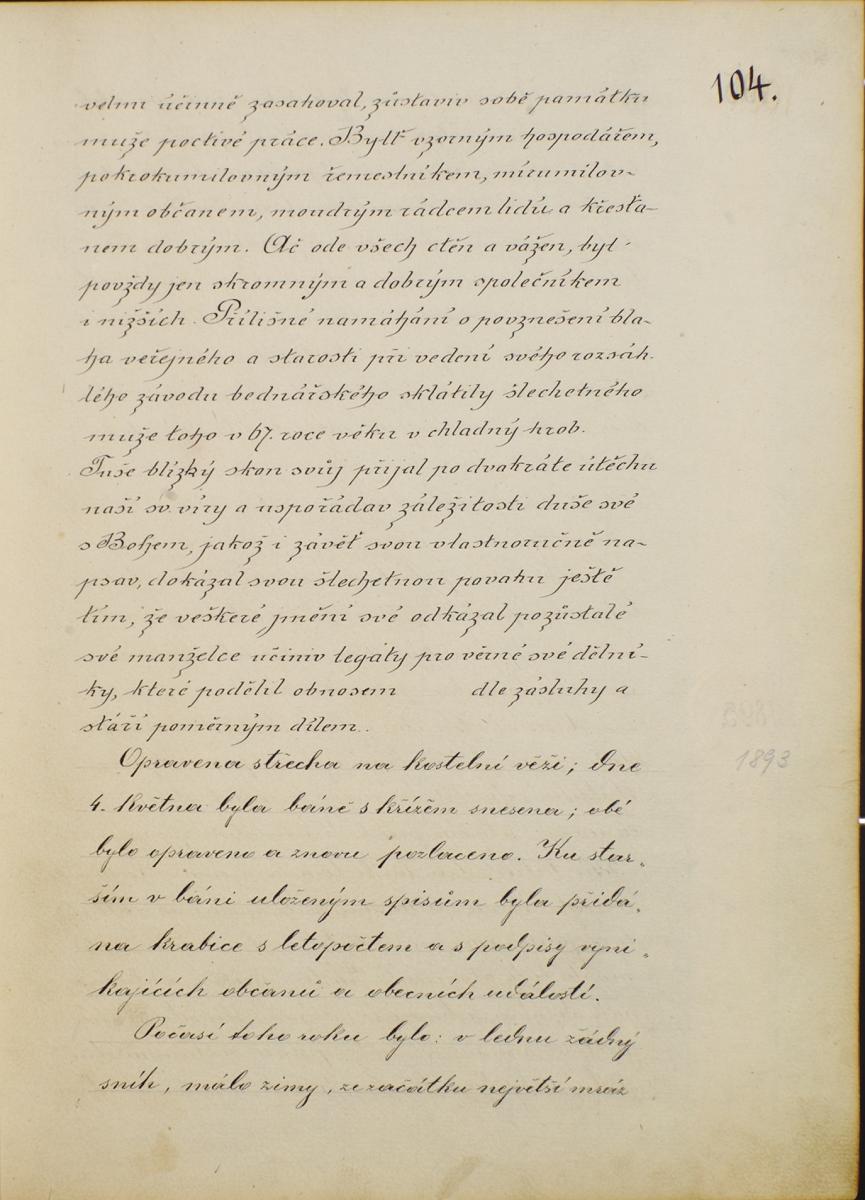 104.
velmi účinně zasahoval, zůstaviv sobě památku
muže poctivé práce. Bylť vzorným hospodářem,
pokrokumilovným řemeslníkem, mírumilov-
ným občanem, moudrým rádcem lidu a křesťa-
nem dobrým. Ač ode všech ctěn a vážen, byl
povždy jen skromným a dobrým společníkem
i nižších. Přílišné namáhání o povznešení bla-
ha veřejného a starosti při vedení svého rozsáh-
lého závodu bednářského sklátily šlechetného
muže toho v 67. roce věku v chladný hrob.
Tuše blízký skon svůj přijal po dvakráte útěchu
naší sv. víry a uspořádav záležitosti duše své
s Bohem, jakož i závěť svou vlastnoručně na-
psav, dokázal svou šlechetnou povahu ještě
tím, že veškeré jmění své odkázal pozůstalé
své manželce učiniv legáty pro věrné své dělní-
ky, které podělil obnosem dle zásluhy a
stáří poměrným dílem.
Opravena střecha na kostelní věži; dne
1893
4. května byla báně s křížem snesena; obé
bylo opraveno a znovu pozlaceno. Ku star„
ším v báni uloženým spisům byla přidá„
na krabice s letopočtem a s podpisy vyni„
kajících občanů a obecních událostí.
Počasí toho roku bylo: v lednu žádný
sníh, málo zimy, ze začátku největší mráz